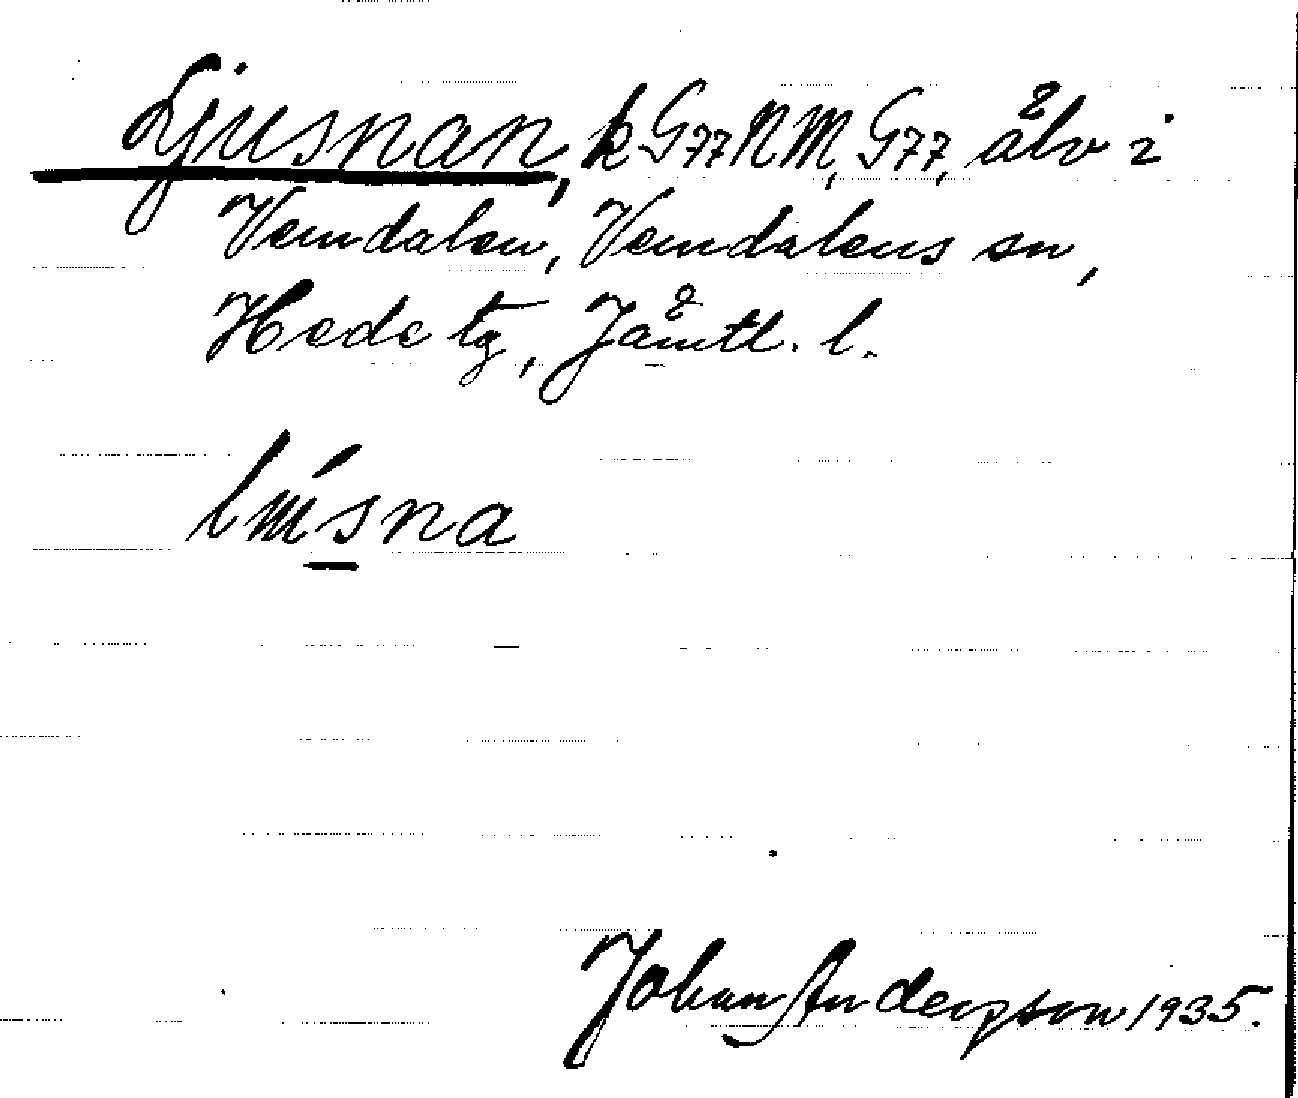 Ljusnan, k G77 NM, G77, älv i
Vemdalen, Vemdalens sn,
Hede tg, Jämtl. l.
Johan Andersson 1935.